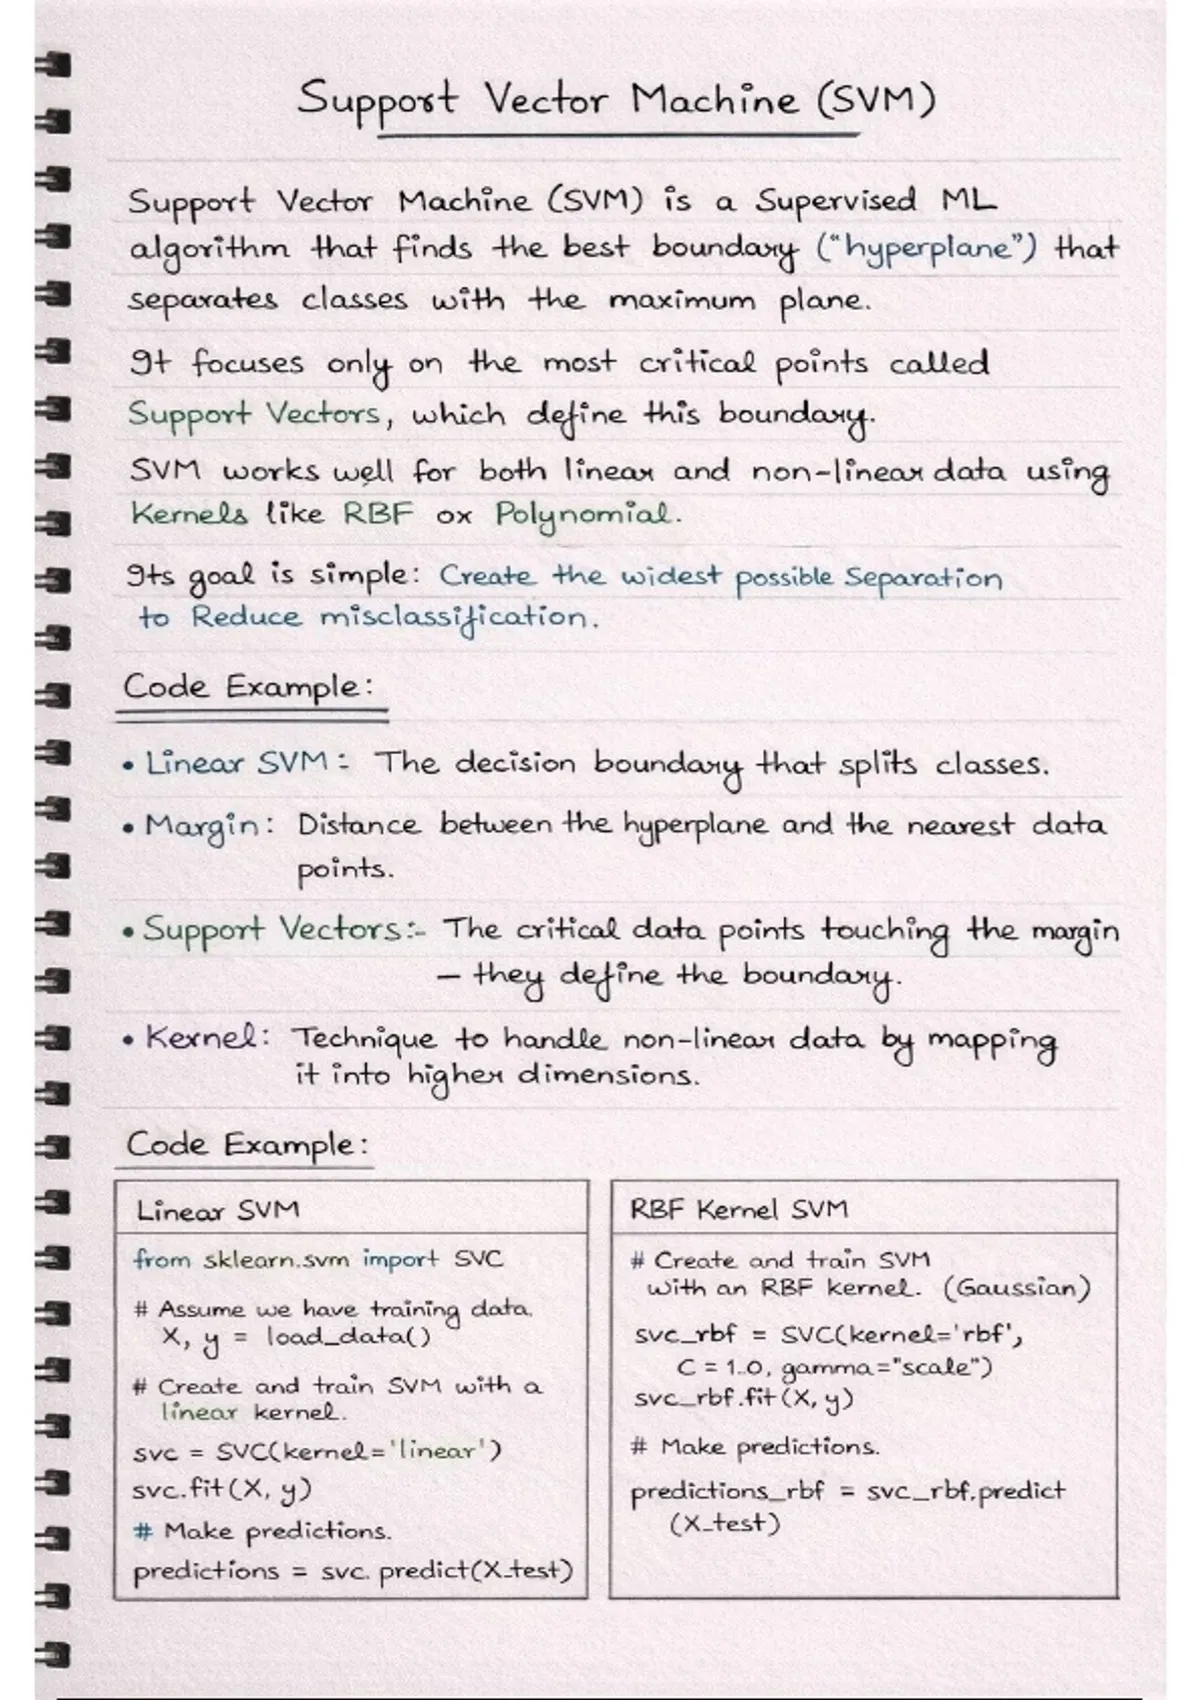 Support Vector Machine (SVM)
Support Vector Machine (SVM) is a Supervised ML
algorithm that finds the best boundary ("hyperplane") that
separates classes with the maximum plane.
It focuses only on the most critical points called
Support Vectors, which define this boundary.
SVM works well for both linear and non-linear data using
Kernels like RBF ox Polynomial.
Its goal is simple: Create the widest possible Separation
to Reduce misclassification.
Code Example:
• Linear SVM: The decision boundary that splits classes.
• Margin: Distance between the hyperplane and the nearest data
points.
• Support Vectors:- The critical data points touching the margin
– they define the boundary.
• Kernel: Technique to handle non-linear data by mapping
it into higher dimensions.
Code Example:
Linear SVM
from sklearn.svm import SVC
# Assume we have training data.
X, y = load_data()
# Create and train SVM with a
linear kernel.
svc = SVC(kernel='linear')
svc.fit(X, y)
# Make predictions.
predictions = svc. predict(X_test)
RBF Kernel SVM
# Create and train SVM
with an RBF kernel. (Gaussian)
svc_rbf = SVC(kernel='rbf',
C = 1..0, gamma="scale")
svc_rbf.fit(X, y)
# Make predictions.
predictions_rbf = svc_rbf.predict
(X_test)